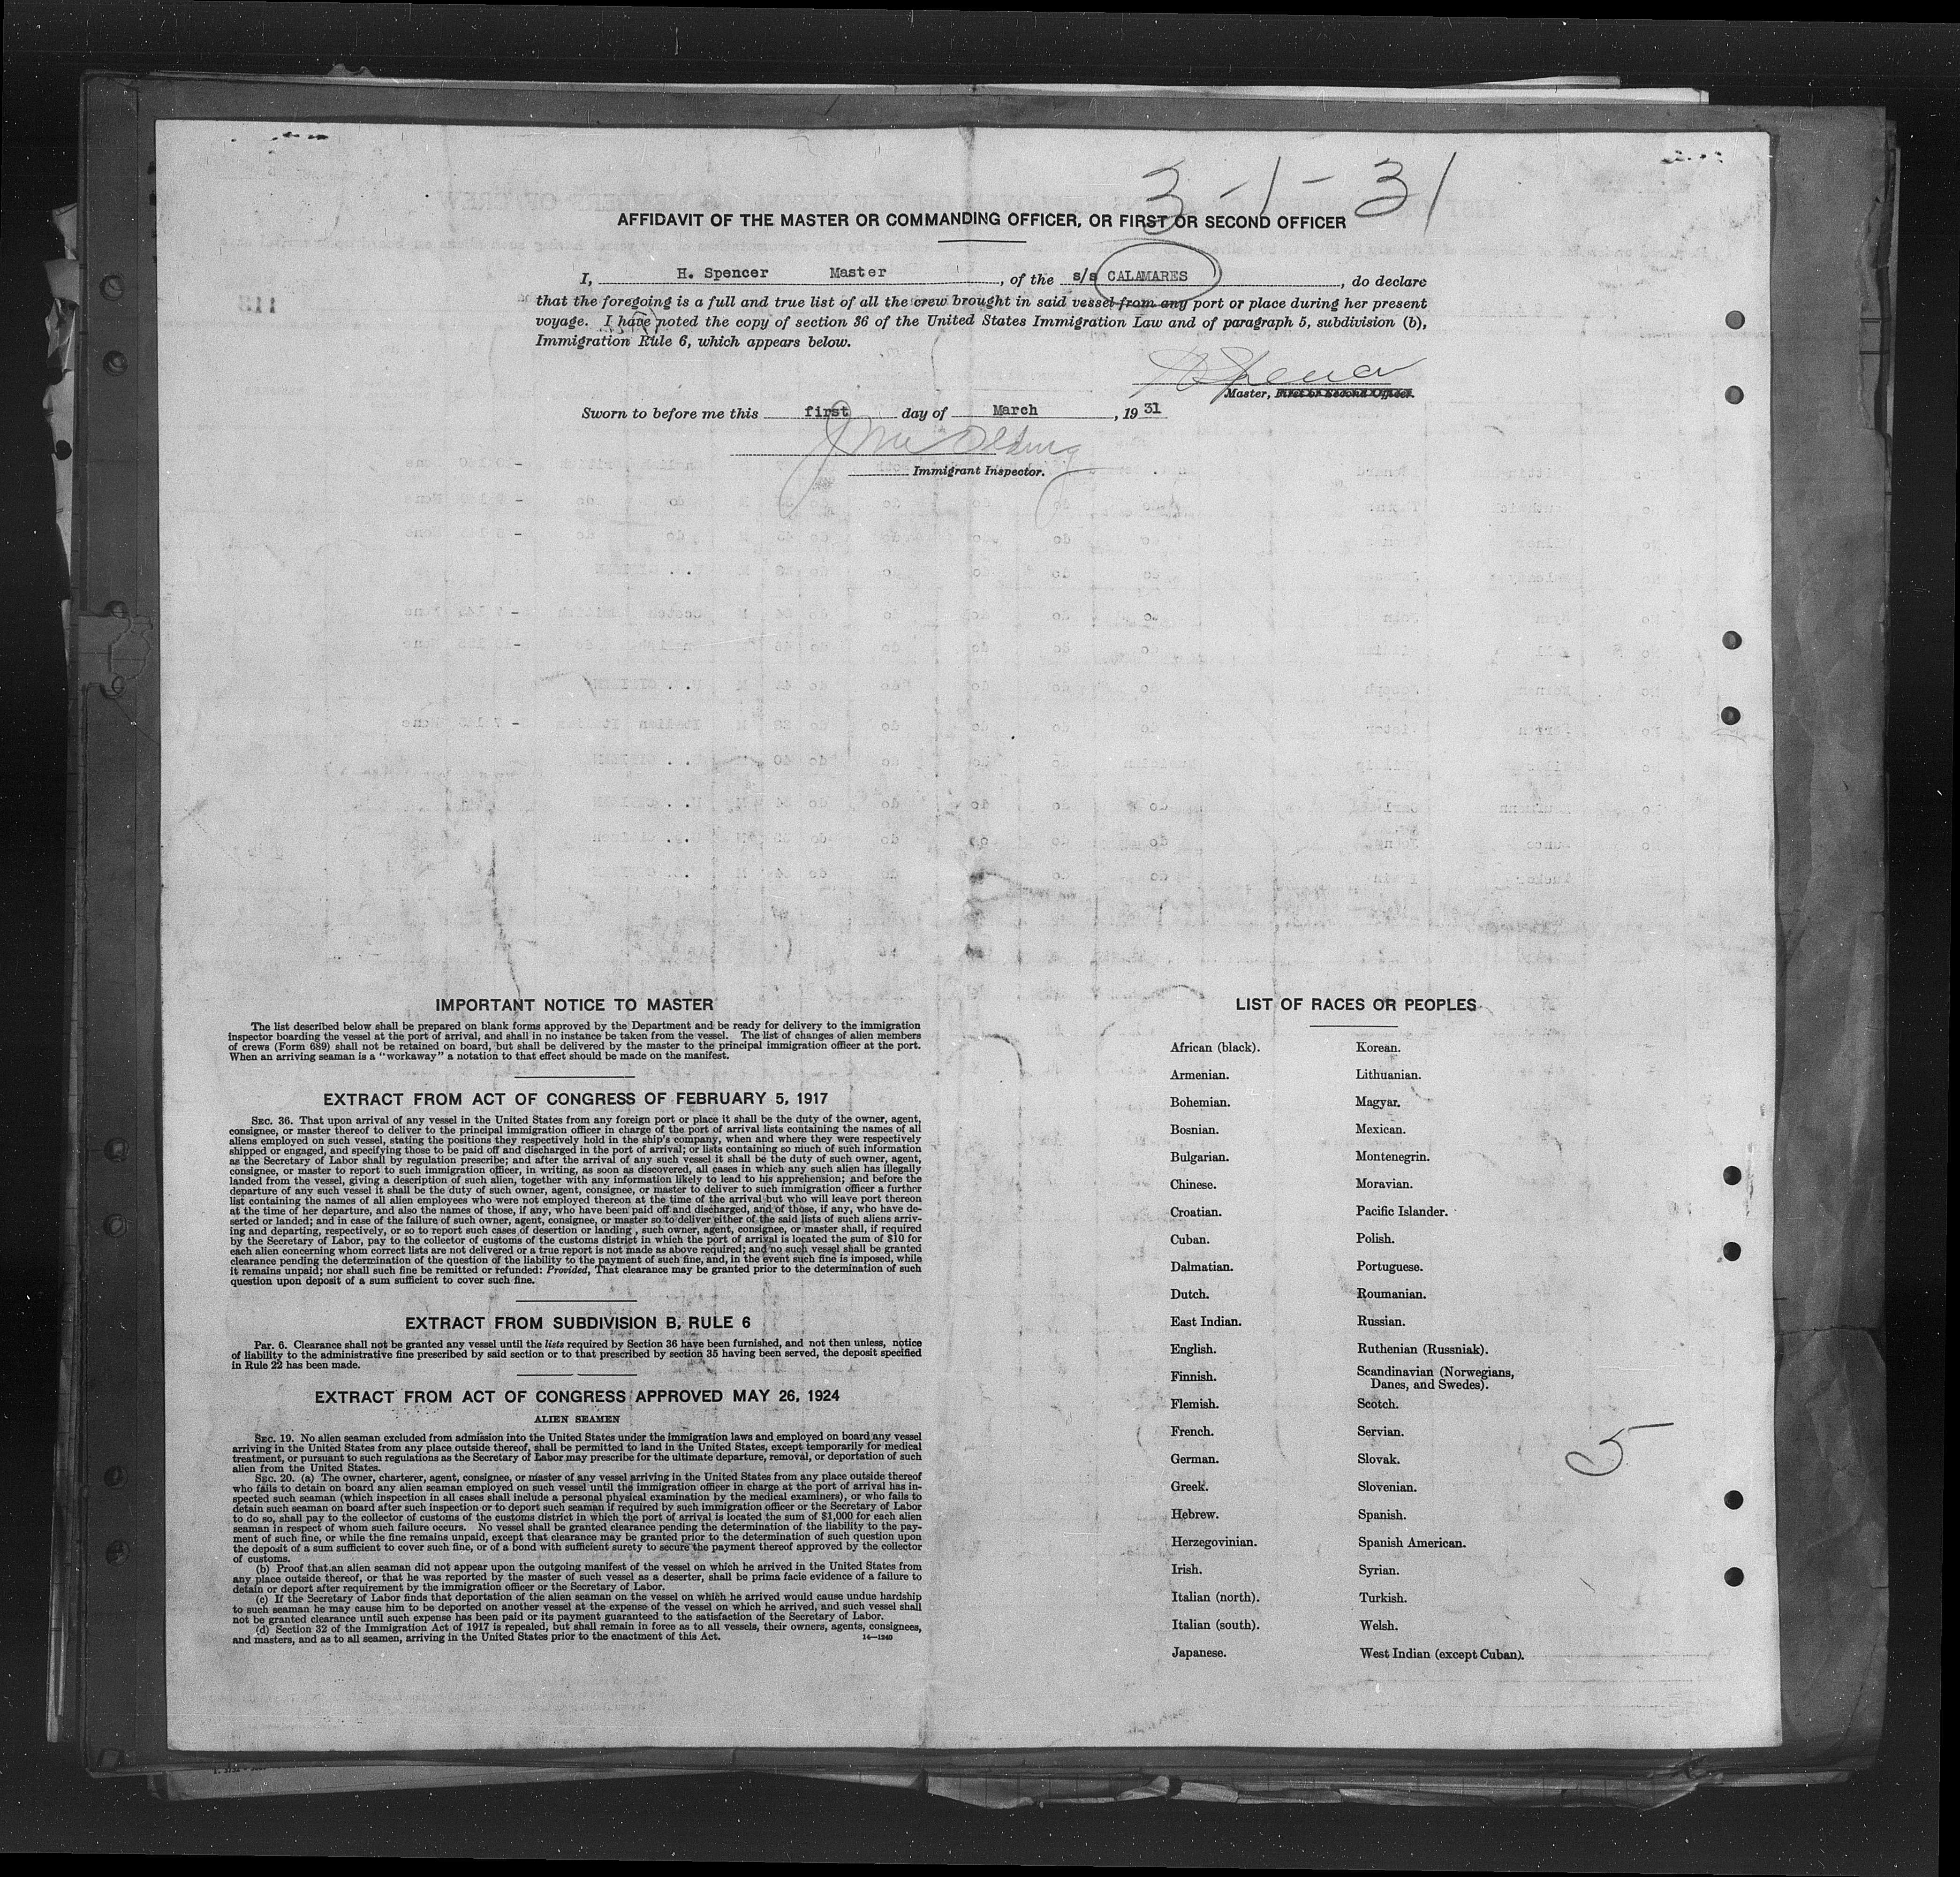 3-1-31
AFFIDAVIT OF THE MASTER OR COMMANDING OFFICER, OR FIRST OR SECOND OFFICER
I, H. Spencer Master, of the s/s CALAMARES, do declare
that the foregoing is a full and true list of all the crew brought in said vessel from any port or place during her present
voyage. I have noted the copy of section 36 of the United States Immigration Law and of paragraph 5, subdivision (b),
Immigration Rule 6, which appears below.
H Spencer
Master, First or Second Officer.
Sworn to before me this first day of March, 1931
Immigrant Inspector.
IMPORTANT NOTICE TO MASTER
The list described below shall be prepared on blank forms approved by the Department and be ready for delivery to the immigration
inspector boarding the vessel at the port of arrival, and shall in no instance be taken from the vessel. The list of changes of alien members
of crews (Form 689) shall not be retained on board, but shall be delivered by the master to the principal immigration officer at the port.
When an arriving seaman is a "workaway" a notation to that effect should be made on the manifest.
EXTRACT FROM ACT OF CONGRESS OF FEBRUARY 5, 1917
SEC. 36. That upon arrival of any vessel in the United States from any foreign port or place it shall be the duty of the owner, agent,
consignee, or master thereof to deliver to the principal immigration officer in charge of the port of arrival lists containing the names of all
aliens employed on such vessel, stating the positions they respectively hold in the ship's company, when and where they were respectively
shipped or engaged, and specifying those to be paid off and discharged in the port of arrival; or lists containing so much of such information
as the Secretary of Labor shall by regulation prescribe; and after the arrival of any such vessel it shall be the duty of such owner, agent,
consignee, or master to report to such immigration officer, in writing, as soon as discovered, all cases in which any such alien has illegally
landed from the vessel, giving a description of such alien, together with any information likely to lead to his apprehension; and before the
departure of any such vessel it shall be the duty of such owner, agent, consignee, or master to deliver to such immigration officer a further
list containing the names of all alien employees who were not employed thereon at the time of the arrival but who will leave port thereon
at the time of her departure, and also the names of those, if any, who have been paid off and discharged, and of those, if any, who have de-
serted or landed; and in case of the failure of such owner, agent, consignee, or master so to deliver either of the said lists of such aliens arriv-
ing and departing, respectively, or so to report such cases of desertion or landing, such owner, agent, consignee, or master shall, if required
by the Secretary of Labor, pay to the collector of customs of the customs district in which the port of arrival is located the sum of $10 for
each alien concerning whom correct lists are not delivered or a true report is not made as above required; and no such vessel shall be granted
clearance pending the determination of the question of the liability to the payment of such fine, and, in the event such fine is imposed, while
it remains unpaid; nor shall such fine be remitted or refunded: Provided, That clearance may be granted prior to the determination of such
question upon deposit of a sum sufficient to cover such fine.
EXTRACT FROM SUBDIVISION B, RULE 6
Par. 6. Clearance shall not be granted any vessel until the lists required by Section 36 have been furnished, and not then unless, notice
of liability to the administrative fine prescribed by said section or to that prescribed by section 35 having been served, the deposit specified
in Rule 22 has been made.
EXTRACT FROM ACT OF CONGRESS APPROVED MAY 26, 1924
ALIEN SEAMEN
SEC. 19. No alien seaman excluded from admission into the United States under the immigration laws and employed on board any vessel
arriving in the United States from any place outside thereof, shall be permitted to land in the United States, except temporarily for medical
treatment, or pursuant to such regulations as the Secretary of Labor may prescribe for the ultimate departure, removal, or deportation of such
alien from the United States.
SEC. 20. (a) The owner, charterer, agent, consignee, or master of any vessel arriving in the United States from any place outside thereof
who fails to detain on board any alien seaman employed on such vessel until the immigration officer in charge at the port of arrival has in-
spected such seaman (which inspection in all cases shall include a personal physical examination by the medical examiners), or who fails to
detain such seaman on board after such inspection or to deport such seaman if required by such immigration officer or the Secretary of Labor
to do so, shall pay to the collector of customs of the customs district in which the port of arrival is located the sum of $1,000 for each alien
seaman in respect of whom such failure occurs. No vessel shall be granted clearance pending the determination of the liability to the pay-
ment of such fine, or while the fine remains unpaid, except that clearance may be granted prior to the determination of such question upon
the deposit of a sum sufficient to cover such fine, or of a bond with sufficient surety to secure the payment thereof approved by the collector
of customs.
(b) Proof that an alien seaman did not appear upon the outgoing manifest of the vessel on which he arrived in the United States from
any place outside thereof, or that he was reported by the master of such vessel as a deserter, shall be prima facie evidence of a failure to
detain or deport after requirement by the immigration officer or the Secretary of Labor.
(c) If the Secretary of Labor finds that deportation of the alien seaman on the vessel on which he arrived would cause undue hardship
to such seaman he may cause him to be deported on another vessel at the expense of the vessel on which he arrived, and such vessel shall
not be granted clearance until such expense has been paid or its payment guaranteed to the satisfaction of the Secretary of Labor.
(d) Section 32 of the Immigration Act of 1917 is repealed, but shall remain in force as to all vessels, their owners, agents, consignees,
and masters, and as to all seamen, arriving in the United States prior to the enactment of this Act.
14—1240
LIST OF RACES OR PEOPLES
African (black).
Armenian.
Bohemian.
Bosnian.
Bulgarian.
Chinese.
Croatian.
Cuban.
Dalmatian.
Dutch.
East Indian.
English.
Finnish.
Flemish.
French.
German.
Greek.
Hebrew.
Herzegovinian.
Irish.
Italian (north).
Italian (south).
Japanese.
Korean.
Lithuanian.
Magyar.
Mexican.
Montenegrin.
Moravian.
Pacific Islander.
Polish.
Portuguese.
Roumanian.
Russian.
Ruthenian (Russniak).
Scandinavian (Norwegians,
Danes, and Swedes).
Scotch.
Servian.
Slovak.
Slovenian.
Spanish.
Spanish American.
Syrian.
Turkish.
Welsh.
West Indian (except Cuban).
5